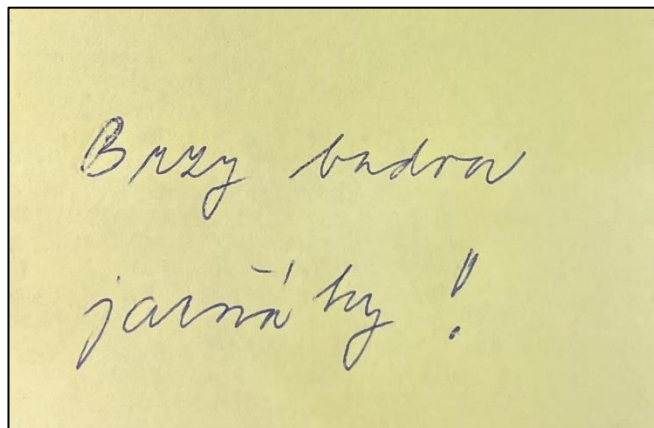 Brzy budou
jarňáky!